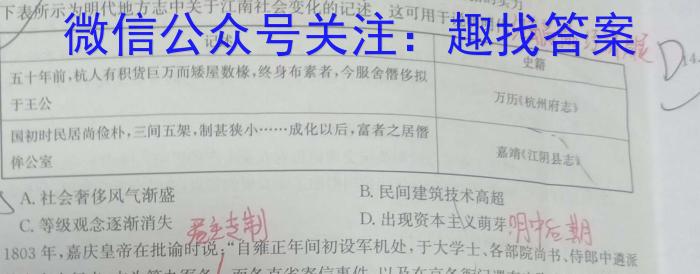 下表所示为明代地方志中关于江南社会变化的记述，这可用于
微信公众号关注：趣找答案
记述
史籍
五十年前，杭人有积货巨万而矮屋数椽，终身布素者，今服舍僭侈拟
于王公
万历《杭州府志》
国初时民居尚俭朴，三间五架，制甚狭小……成化以后，富者之居僭
侔公室
嘉靖《江阴县志》
D
14.
A. 社会奢侈风气渐盛
B. 民间建筑技术高超
C. 等级观念逐渐消失
君主专制
D. 出现资本主义萌芽
明中后期
1803年，嘉庆皇帝在批谕时说：“自雍正年间初设军机处，于大学士、各部院尚书、侍郎中遴派